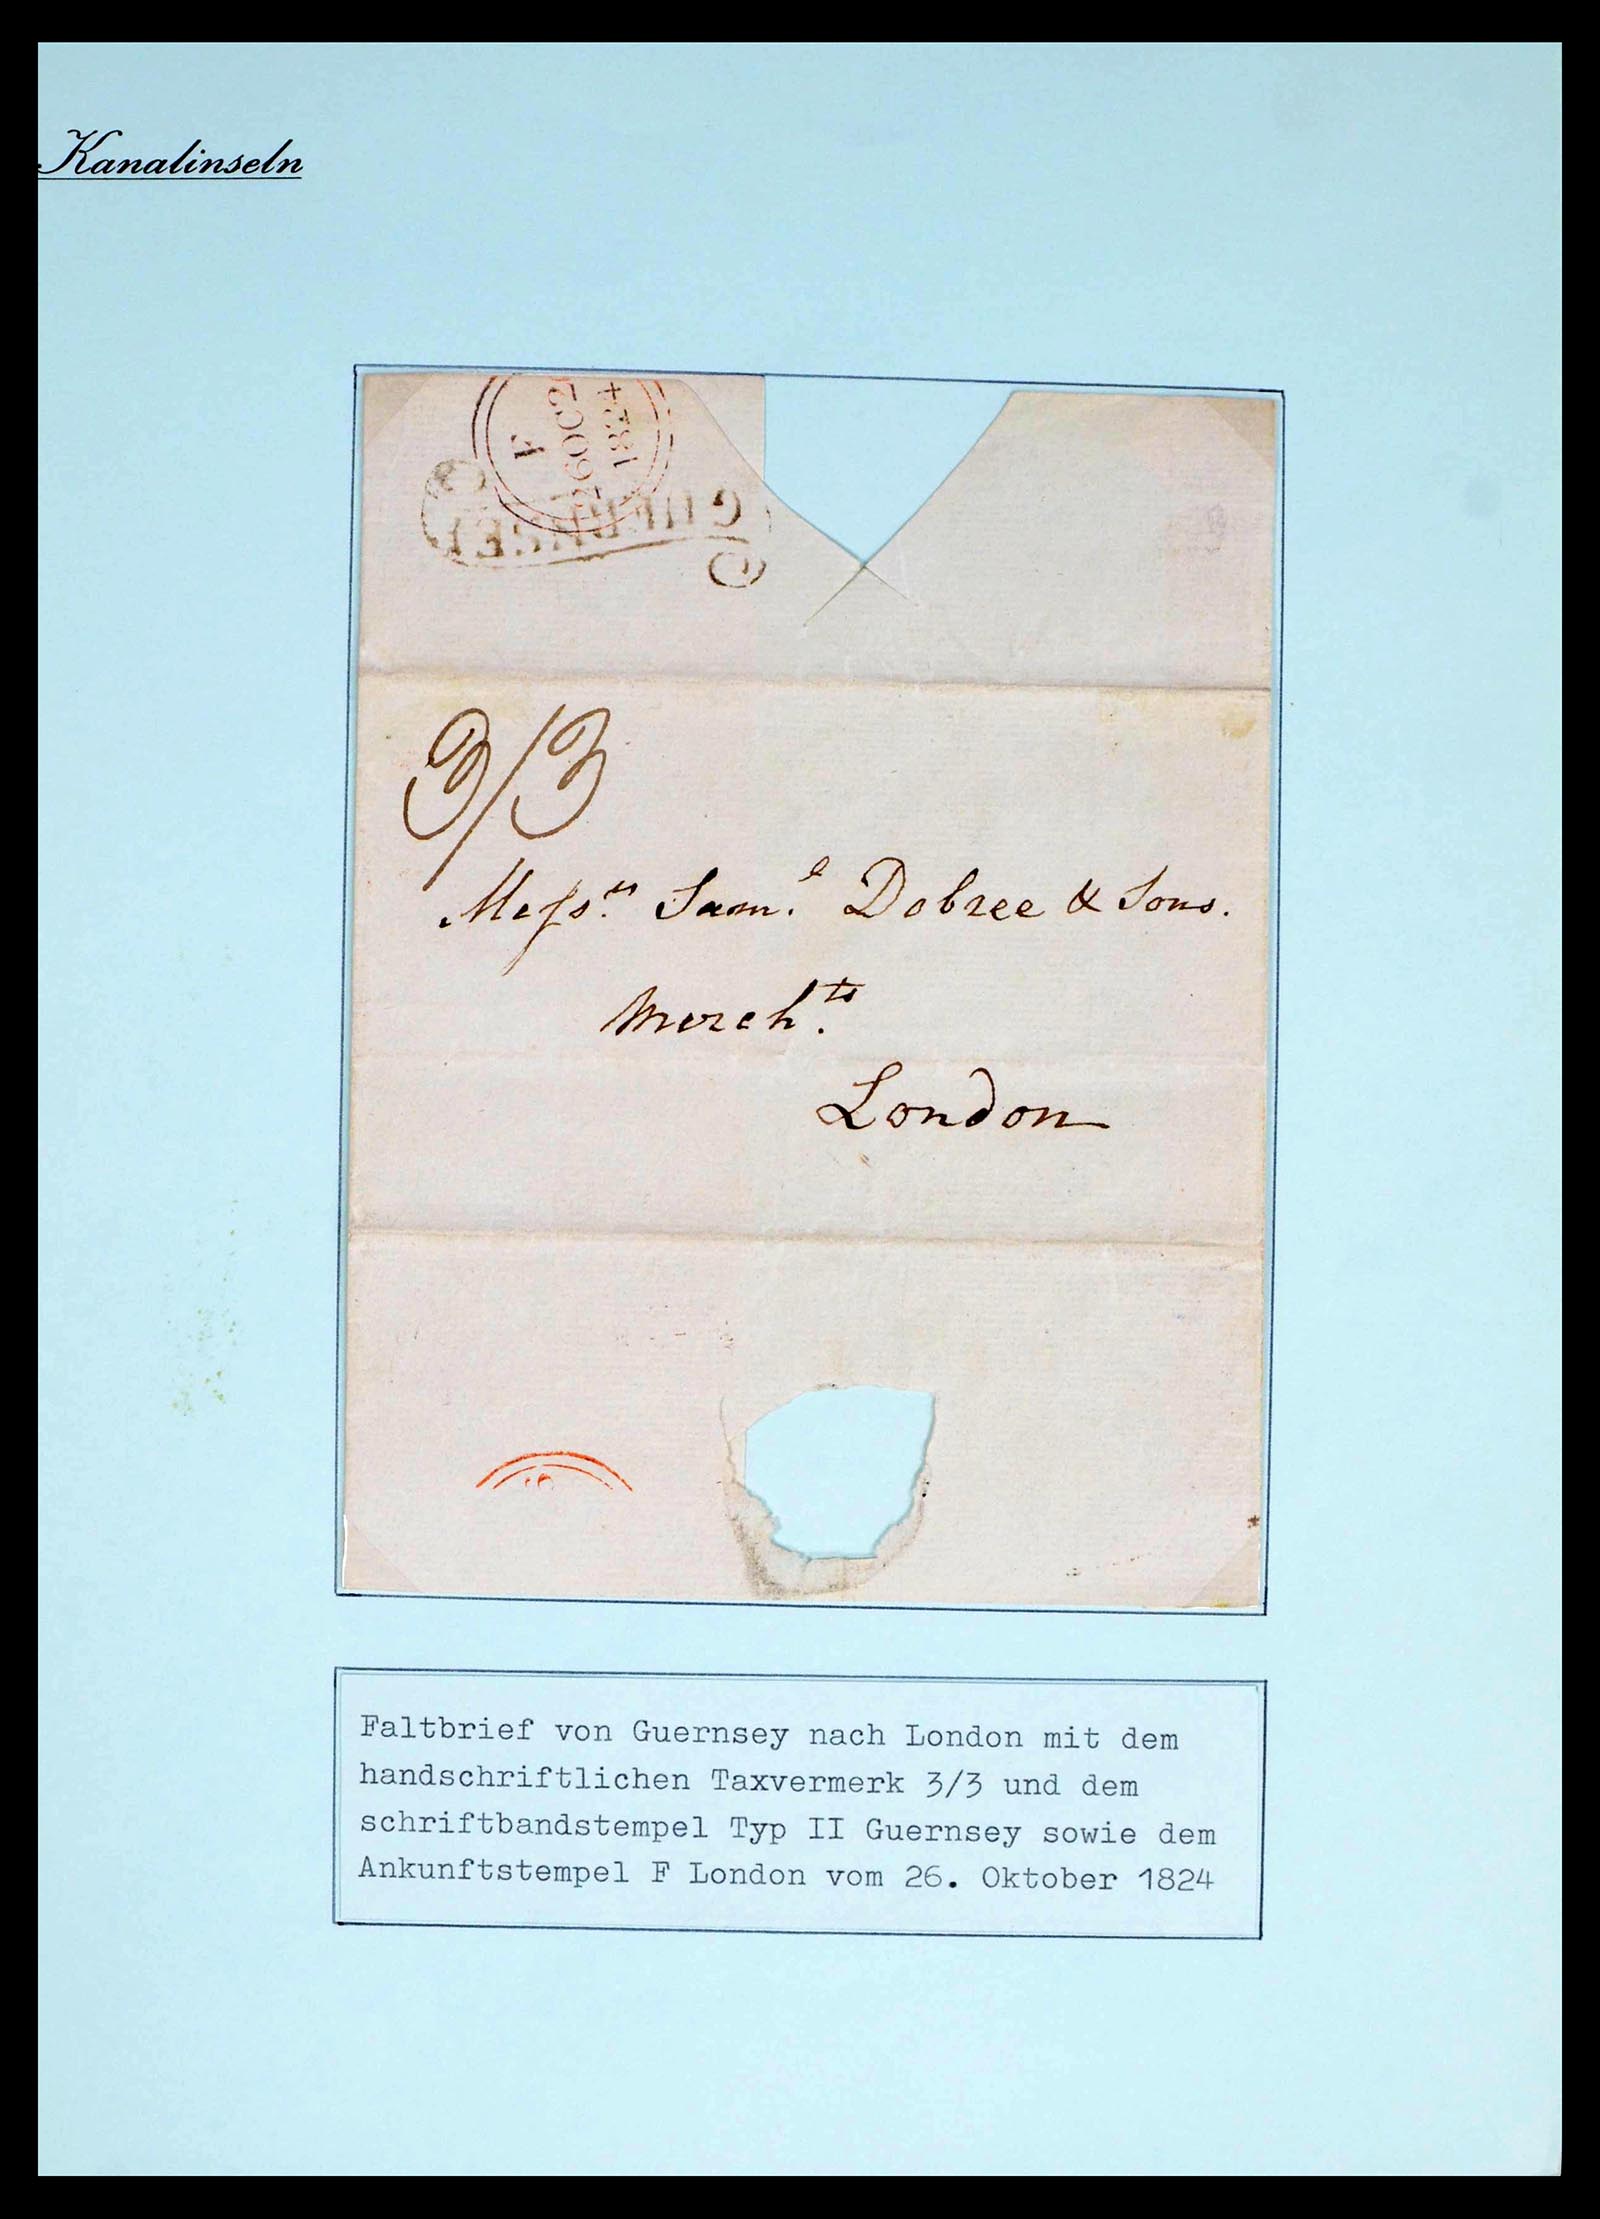 Kanalinseln
F
26OC26
1824
GUERNSEY
3/3
Messrs. Saml. Dobree & Sons.
Merchts.
London
Faltbrief von Guernsey nach London mit dem
handschriftlichen Taxvermerk 3/3 und dem
schriftbandstempel Typ II Guernsey sowie dem
Ankunftstempel F London vom 26. Oktober 1824